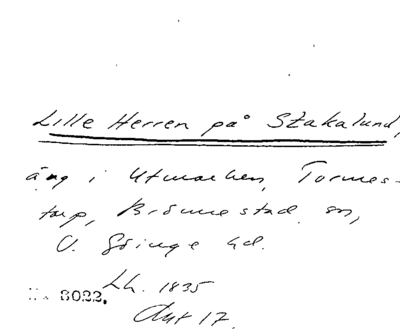 Lille Herren på Stakalund,
äng i Utmarken, Tormes-
torp, Brönnestad sn,
V. Göinge hd.
Lh. 1835
8022.
Akt 17.